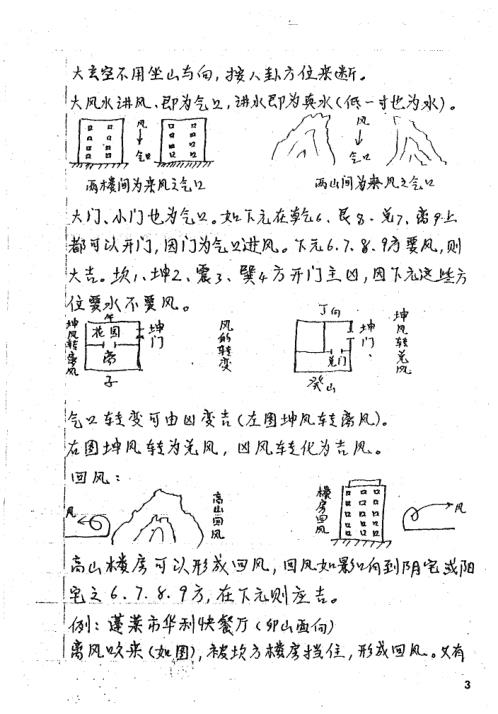 大玄空不用坐山与向，按八卦方位来断。
大风水进风、即为气口，进水即为真水（低一寸也为水）。
风
气口
风
气口
两楼间为来风之气口
两山间为来风之气口
大门、小门也为气口。如下元在乾6、艮8、兑7、离9上
都可以开门，因门为气口进风。下元6.7.8.9方要风，则
大吉。坎1、坤2、震3、巽4方开门主凶，因下元这些方
位要水不要风。
坤风转离风
午
花园
离
子
坤门
风的转变
丁向
坤门
兑门
癸山
坤风转兑风
气口转变可由凶变吉（左图坤风转离风）。
右图坤风转为兑风，凶风转化为吉风。
回风：
风
高山回风
楼房回风
风
高山楼房可以形成回风，回风如影响到阴宅或阳
宅之6.7.8.9方，在下元则应吉。
例：蓬莱市华利快餐厅（卯山酉向）
离风吹来（如图），被坎方楼房挡住，形成回风。又有
3